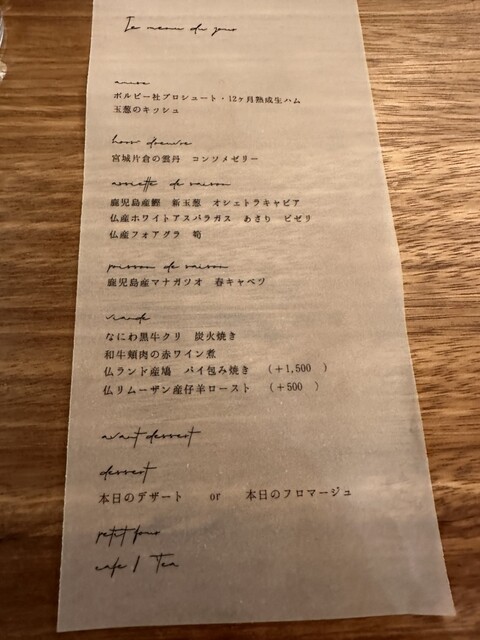 Le menu du jour
amuse
ボルピー社プロシュート・12ヶ月熟成生ハム
玉葱のキッシュ
hors d'oeuvre
宮城片倉の雲丹 コンソメゼリー
assiette de saison
鹿児島産鰹 新玉葱 オシェトラキャビア
仏産ホワイトアスパラガス あさり ピゼリ
仏産フォアグラ 筍
poisson de saison
鹿児島産マナガツオ 春キャベツ
viande
なにわ黒牛クリ 炭火焼き
和牛頬肉の赤ワイン煮
仏ランド産鳩 パイ包み焼き (+1,500 )
仏リムーザン産仔羊ロースト (+500 )
avant dessert
dessert
本日のデザート or 本日のフロマージュ
petit four
cafe / Tea